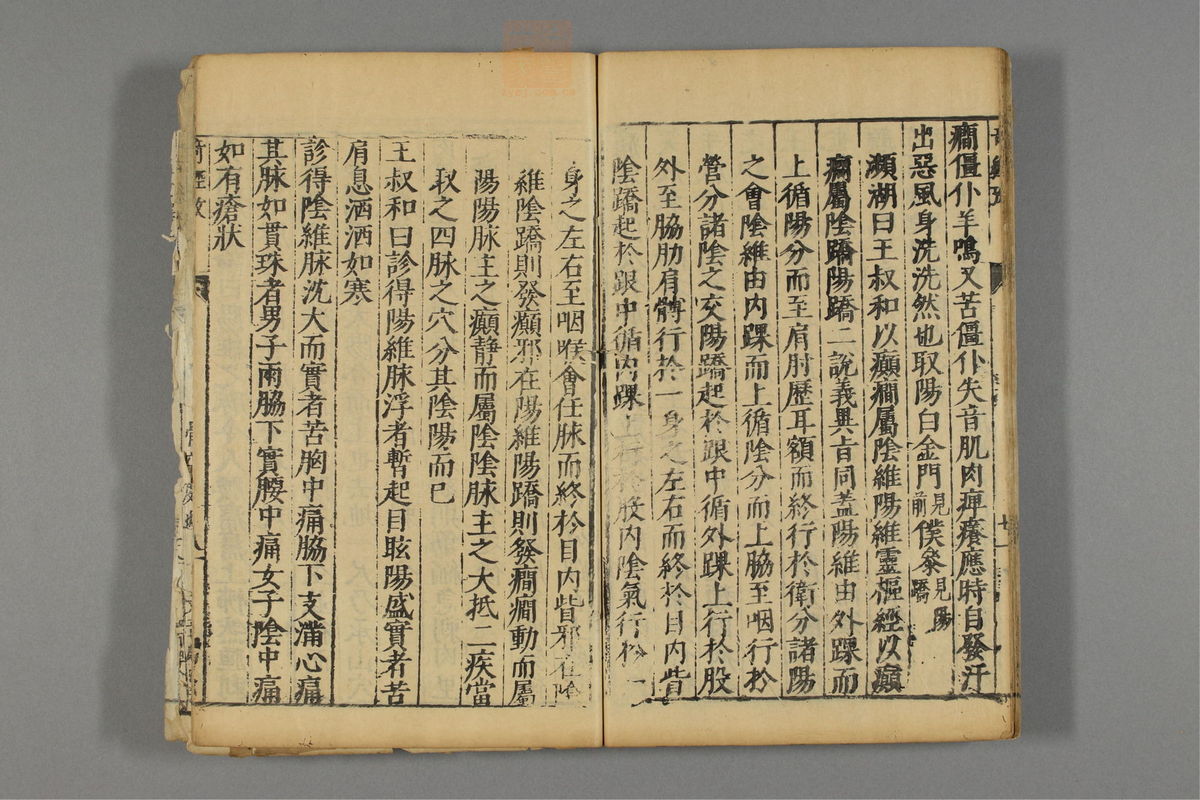 癎僵仆羊鳴又苦僵仆失音肌肉痺癢應時自發汗
出惡風身洗洗然也取陽白金門見前僕參見陽蹻
瀕湖曰王叔和以癲癎屬陰維陽維靈樞經以癲
癎屬陰蹻陽蹻二說義異旨同蓋陽維由外踝而
上循陽分而至肩肘歷耳額而終行於衛分諸陽
之會陰維由內踝而上循陰分而上脇至咽行於
營分諸陰之交陽蹻起於跟中循外踝上行於股
外至脇肋肩髆行於一身之左右而終於目內眥
陰蹻起於跟中循內踝上行於股內陰氣行於一
身之左右至咽喉會任脉而終於目內眥邪在陰
維陰蹻則發癲邪在陽維陽蹻則發癎癎動而屬
陽陽脉主之癲静而屬陰陰脉主之大抵二疾當
取之四脉之穴分其陰陽而已
王叔和曰診得陽維脉浮者暫起目眩陽盛實者苦
肩息洒洒如寒
診得陰維脉沈大而實者苦胸中痛脇下支滿心痛
其脉如貫珠者男子兩脇下實腰中痛女子陰中痛
如有瘡狀
奇經攷